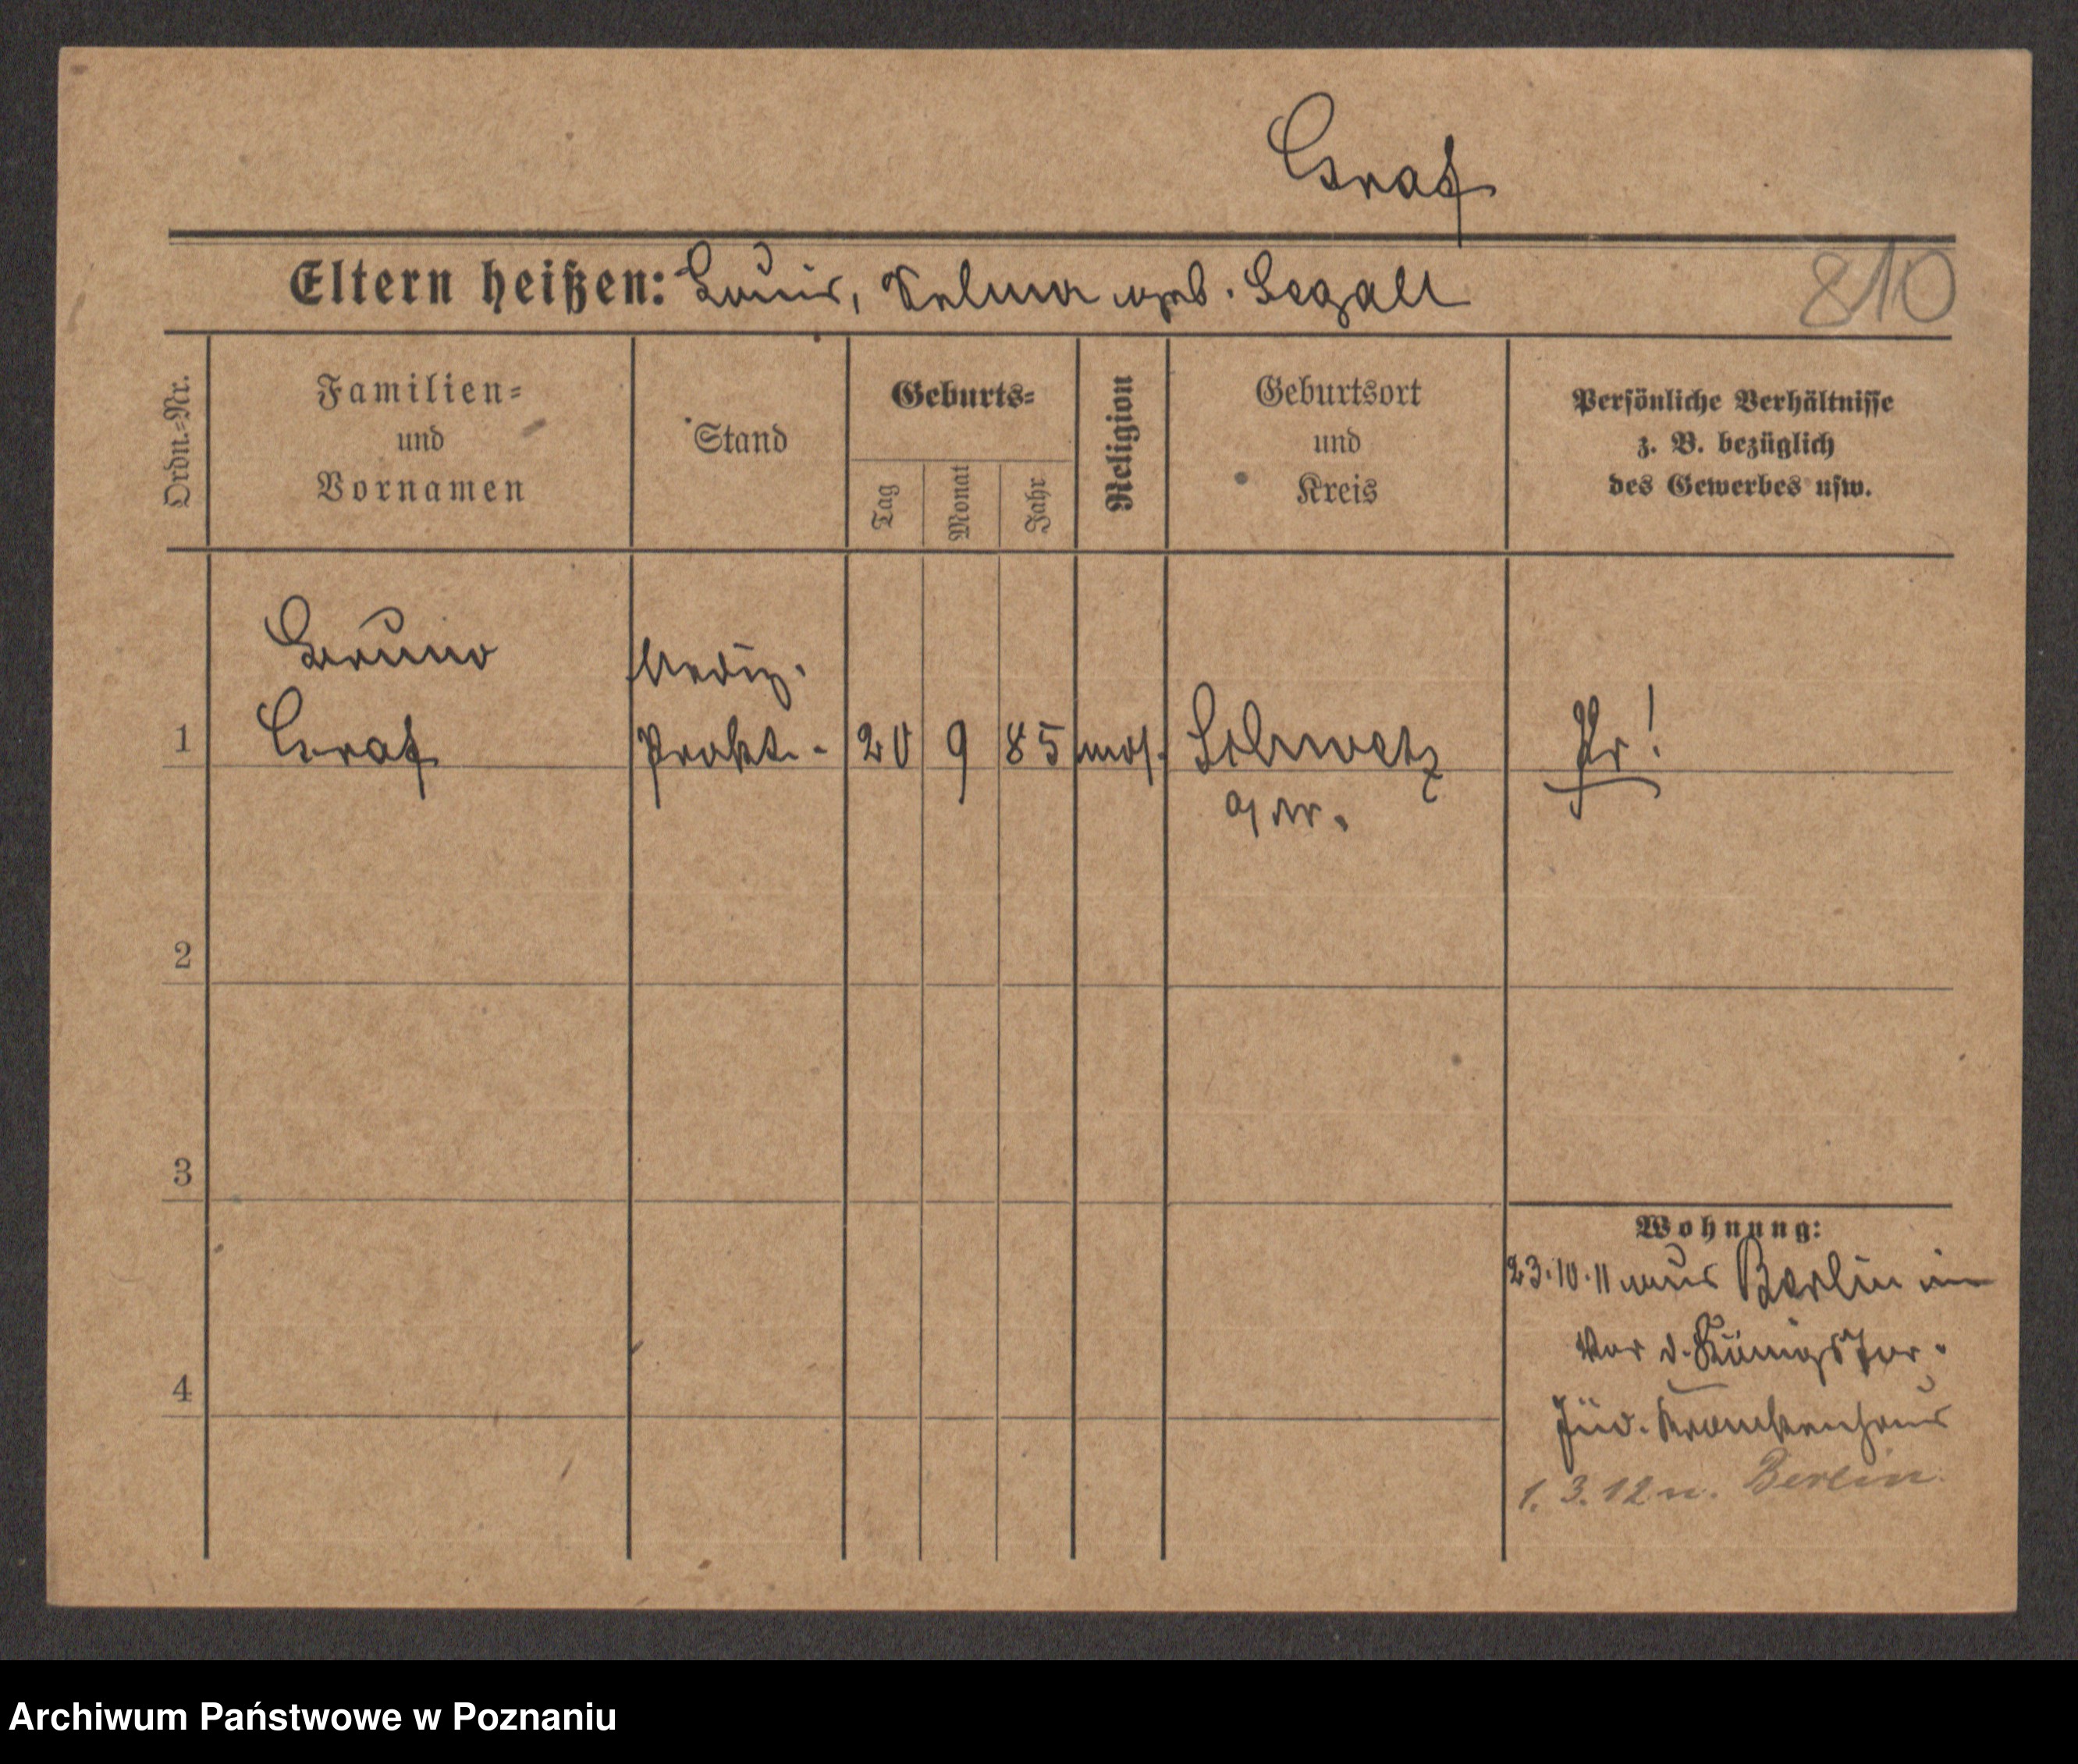 Graf
Eltern heißen: Louis, Selma geb. Segall
810
Ordn.-Nr.
Familien-
und
Vornamen
Stand
Geburts-
Tag
Monat
Jahr
Religion
Geburtsort
und
Kreis
Persönliche Verhältnisse
z. B. bezüglich
des Gewerbes usw.
Bruno
Mediz.
1 Graf Prakt. 20 9 85 mos. Schwetz Pr!
2
3
4
Wohnung:
23.10.11 aus Berlin in
Vor d. Königstor
Jüd. Krankenhaus
1.3.12 n. Berlin
Archiwum Państwowe w Poznaniu